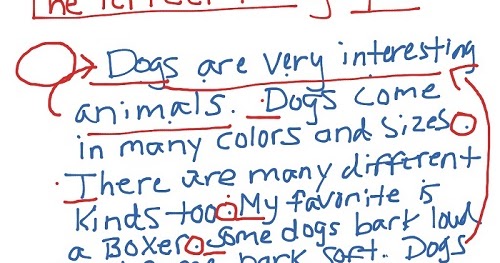 The
Dogs are very interesting
animals. Dogs come
in many colors and sizes.
There are many different
kinds too. My favorite is
a Boxer. Some dogs bark loud
bark soft. Dogs